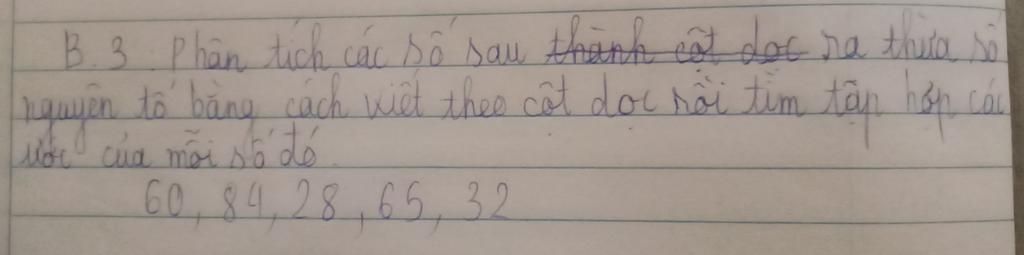 B.3 Phân tích các số sau thành cột dọc ra thừa số
nguyên tố bằng cách viết theo cột dọc rồi tìm tập hợp các
ước của mỗi số đó.
60, 84, 28, 65, 32